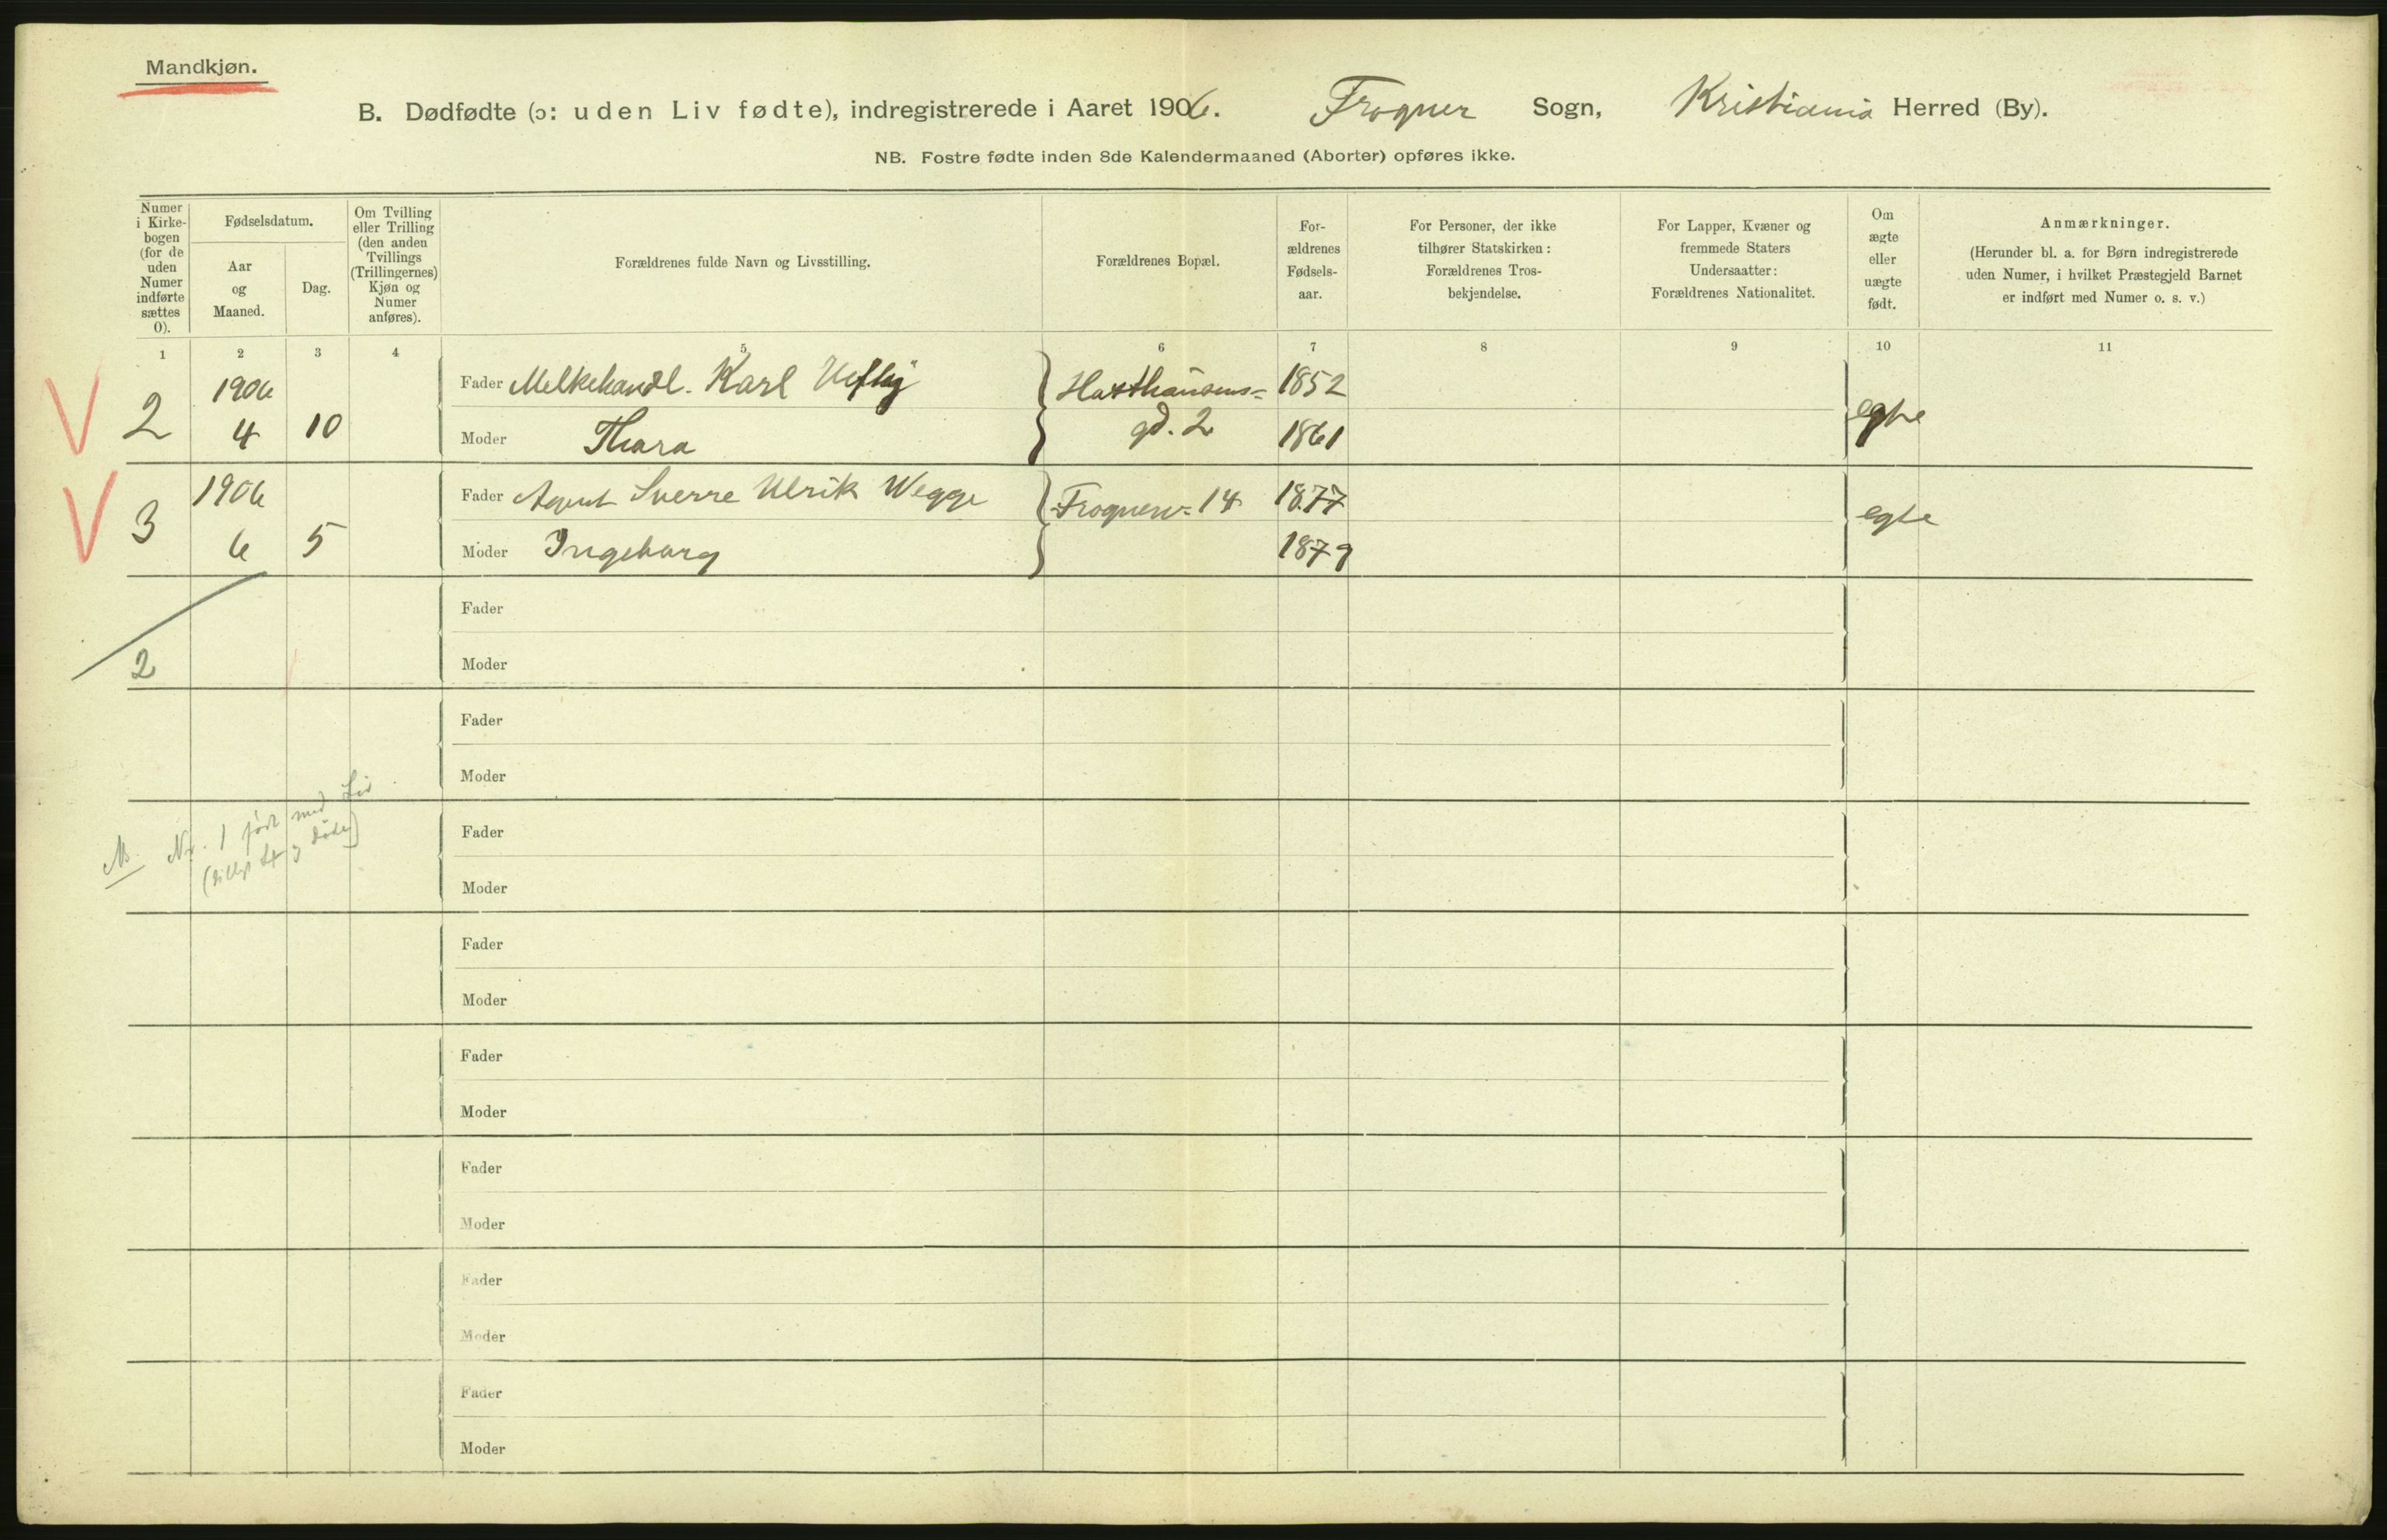 Mandkjøn.
B. Dødfødte (ɔ: uden Liv fødte), indregistrerede i Aaret 1906. Frogner Sogn, Kristiania Herred (By).
NB. Fostre fødte inden 8de Kalendermaaned (Aborter) opføres ikke.
Numer
i Kirke-
bogen
(for de
uden
Numer
indførte
sættes
0).
Fødselsdatum.
Aar
og
Maaned.
Dag.
Om Tvilling
eller Trilling
(den anden
Tvillings
(Trillingernes)
Kjøn og
Numer
anføres).
Forældrenes fulde Navn og Livsstilling.
Forældrenes Bopæl.
For-
ældrenes
Fødsels-
aar.
For Personer, der ikke
tilhører Statskirken:
Forældrenes Tros-
bekjendelse.
For Lapper, Kvæner og
fremmede Staters
Undersaatter:
Forældrenes Nationalitet.
Om
ægte
eller
uægte
født.
Anmærkninger.
(Herunder bl. a. for Børn indregistrerede
uden Numer, i hvilket Præstegjeld Barnet
er indført med Numer o. s. v.)
1 2 3 4 5 6 7 8 9 10 11
1906 Fader Melkehandl. Karl Haxthausens= 1852
2 4 10 Moder Thara gd. 2 1861 egte
1906 Fader Agent Sverre Ulrik Wegge Frognerv. 14 1877
3 6 5 Moder Ingeborg 1879 egte
Fader
2 Moder
Fader
Moder
Nr. 1 født med Liv
Fader
Moder
Fader
Moder
Fader
Moder
Fader
Moder
Fader
Moder
Fader
Moder